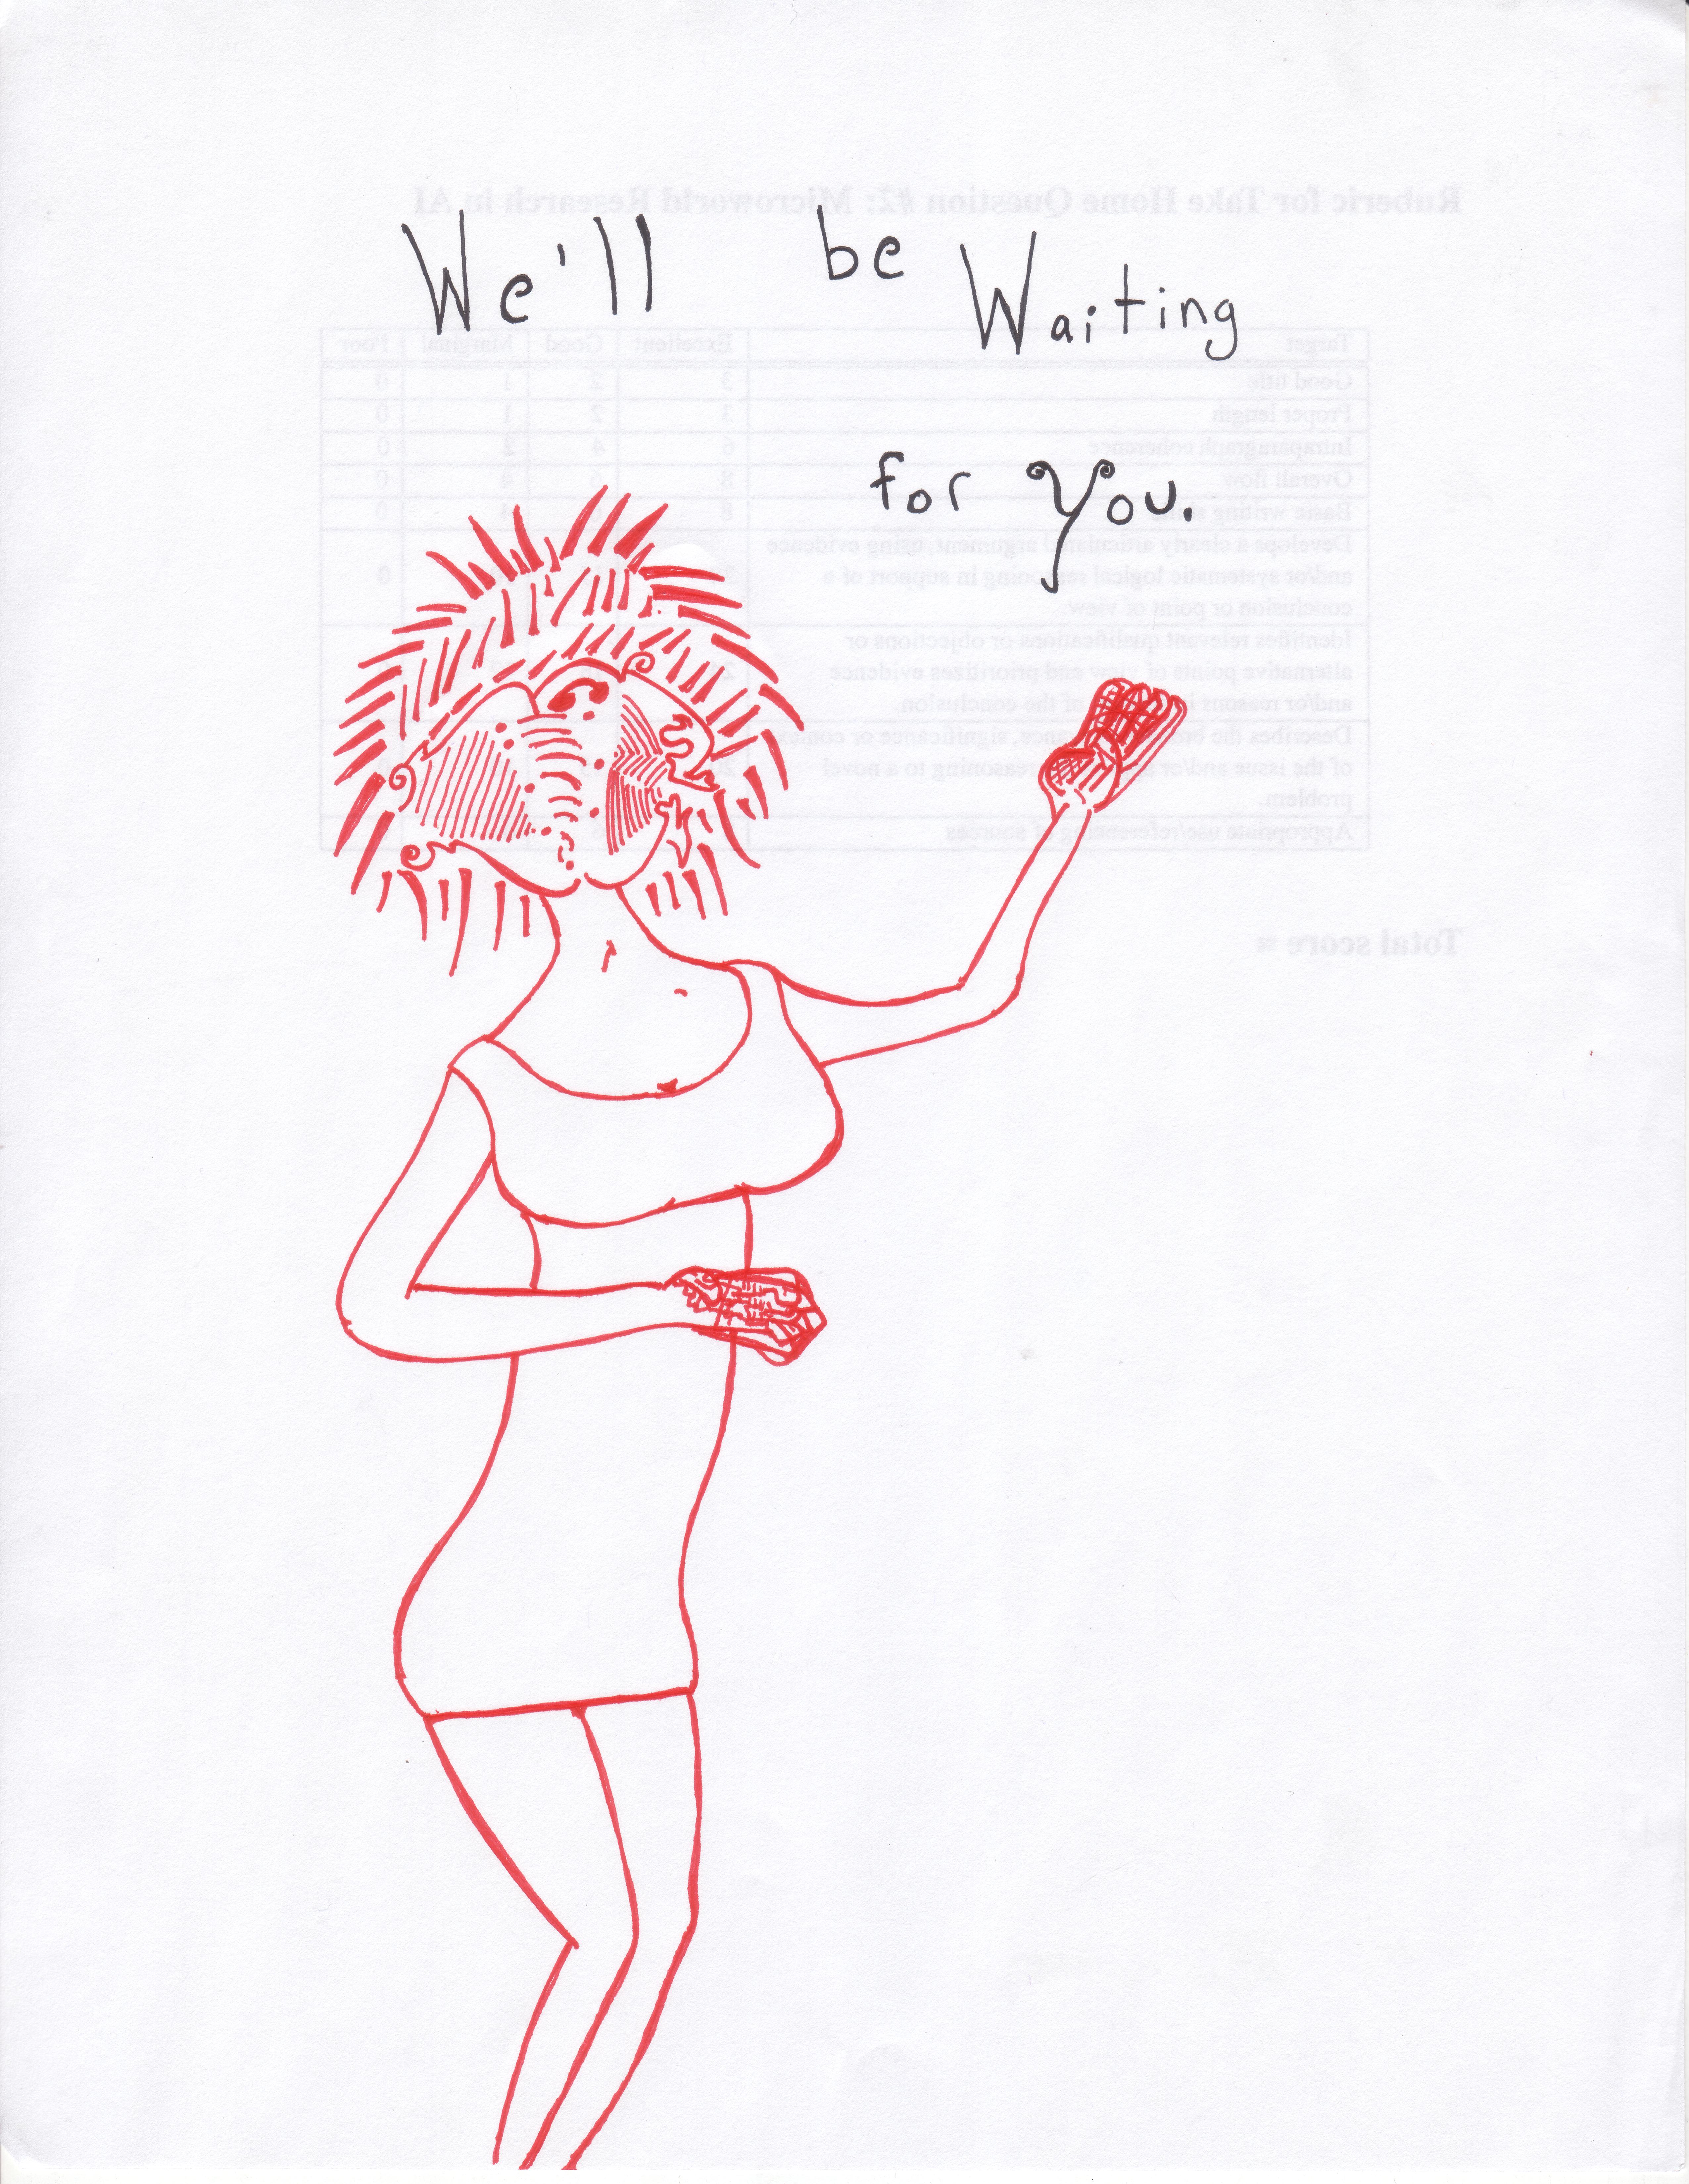 Ruberic for Take Home Question #2: Microworld Research in AI
We'll be Waiting
for You.
Target Excellent Good Marginal Poor
Good title 3 2 1 0
Proper length 3 2 1 0
Intraparagraph coherence 6 4 2 0
Overall flow 8 6 4 0
Basic writing 8 4 0
Develops a clearly articulated argument, using evidence
and/or systematic logical reasoning in support of a 0
conclusion or point of view.
Identifies relevant qualifications or objections or
alternative points of view and prioritizes evidence
and/or reasons of the conclusion.
Describes the significance or context
of the issue and/or reasoning to a novel
problem.
Appropriate use/referencing of sources
Total score =